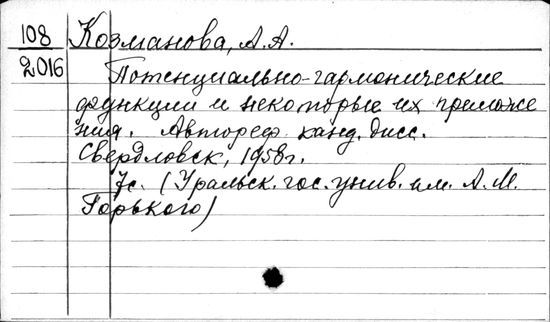 108 Козманова, А.А.
2016 Потенциально-гармонические
функции и некоторые их приложе
ния. Автореф. канд. дисс.
Свердловск, 1958г.
7с. (Уральск. гос. унив. им. А.М.
Горького)